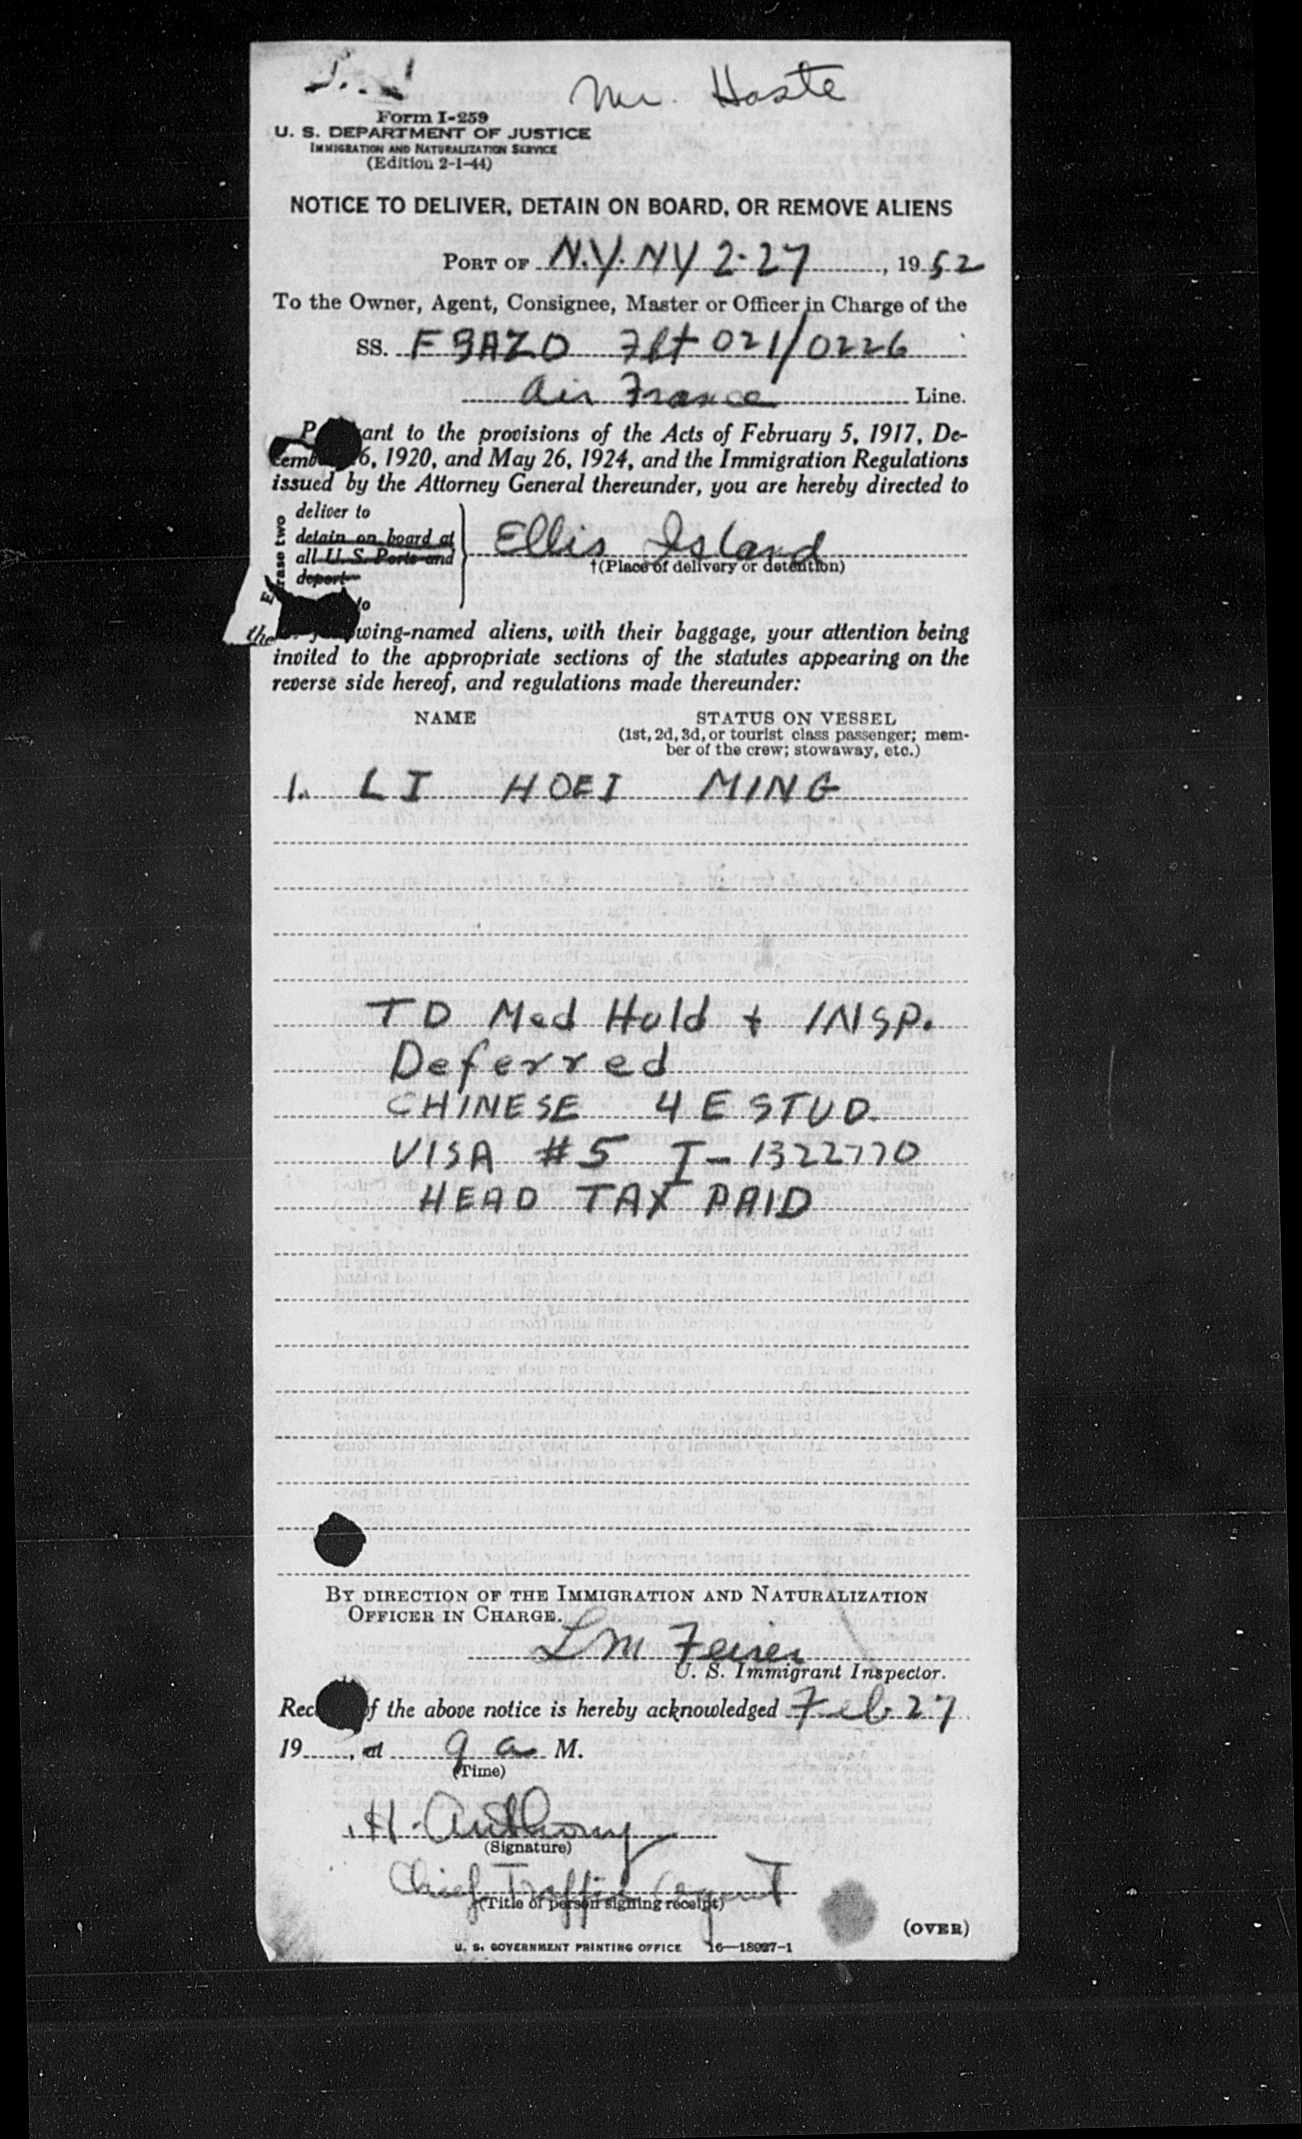 Mr. Haste
Form I-259
U. S. DEPARTMENT OF JUSTICE
IMMIGRATION AND NATURALIZATION SERVICE
(Edition 2-1-44)
NOTICE TO DELIVER, DETAIN ON BOARD, OR REMOVE ALIENS
PORT OF N.Y. NY 2-27, 1952
To the Owner, Agent, Consignee, Master or Officer in Charge of the
SS. FBAZO Flt 021/0226
Air France Line.
P ant to the provisions of the Acts of February 5, 1917, De-
cemb 6, 1920, and May 26, 1924, and the Immigration Regulations
issued by the Attorney General thereunder, you are hereby directed to
deliver to
detain on board at
all U. S. Ports and
deport
to
Erase two
Ellis Island
†(Place of delivery or detention)
the wing-named aliens, with their baggage, your attention being
invited to the appropriate sections of the statutes appearing on the
reverse side hereof, and regulations made thereunder:
NAME STATUS ON VESSEL
(1st, 2d, 3d, or tourist class passenger; mem-
ber of the crew; stowaway, etc.)
1. LI HOEI MING
TD Med Hold + INSP.
Deferred
CHINESE 4 E STUD.
VISA #5 I-1322770
HEAD TAX PAID
BY DIRECTION OF THE IMMIGRATION AND NATURALIZATION
OFFICER IN CHARGE.
L M
U. S. Immigrant Inspector.
Rec f the above notice is hereby acknowledged Feb 27
19 , at 9 a M.
(Time)
H. Anthony
(Signature)
Chief Traffic Agent
(Title of person signing receipt)
(OVER)
U. S. GOVERNMENT PRINTING OFFICE 16—18927-1